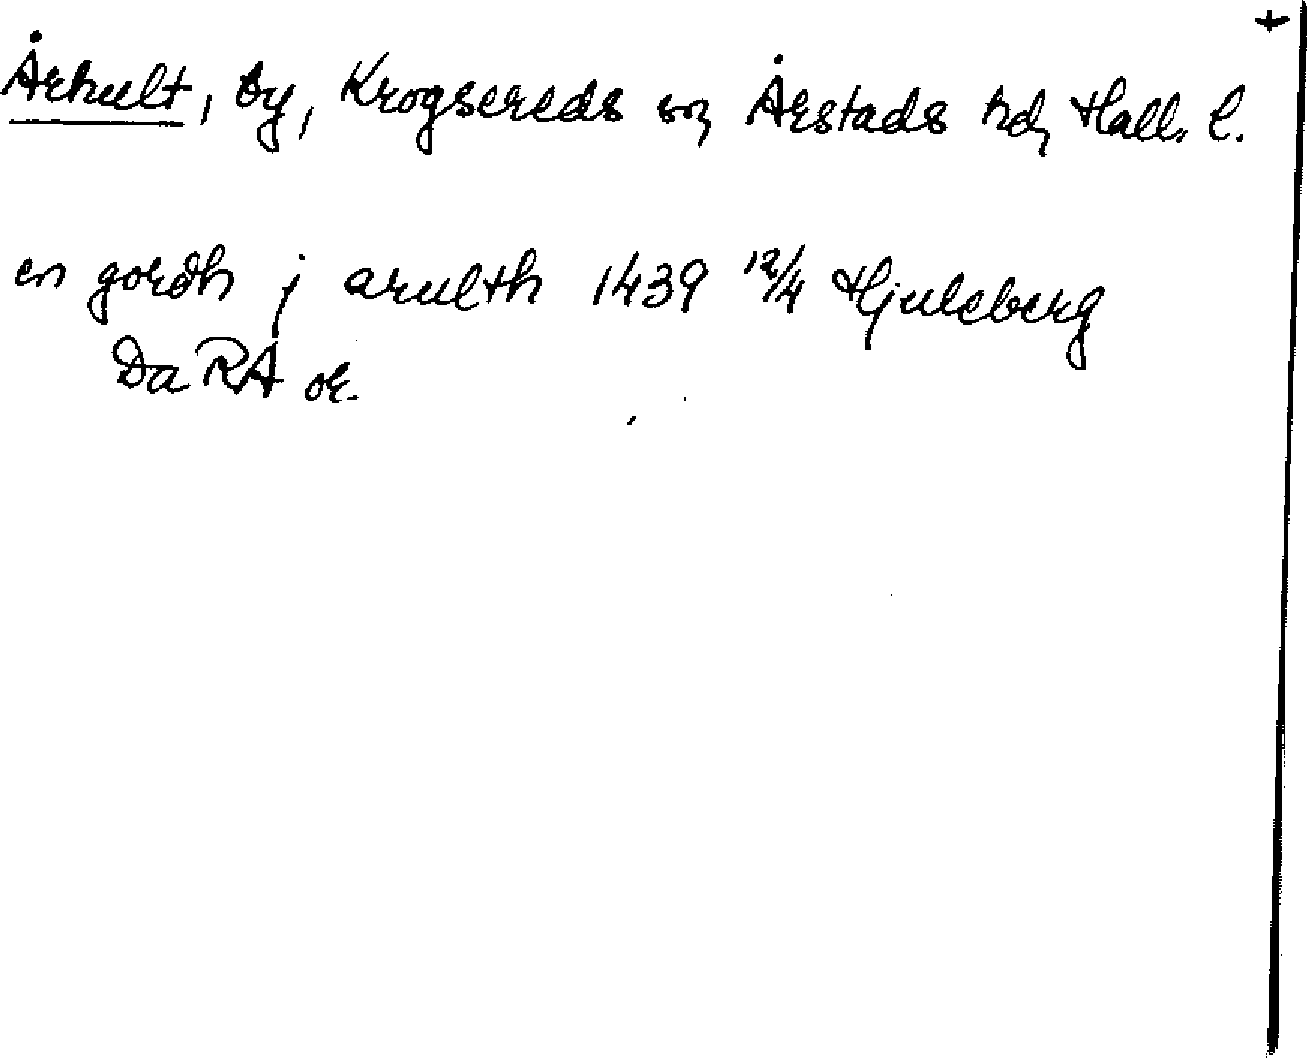 +
Århult, by, Krogsereds sn, Årstads hd, Hall. l.
en gordh j arulth 1439 12/4 Hjuleberg
Da RA or.